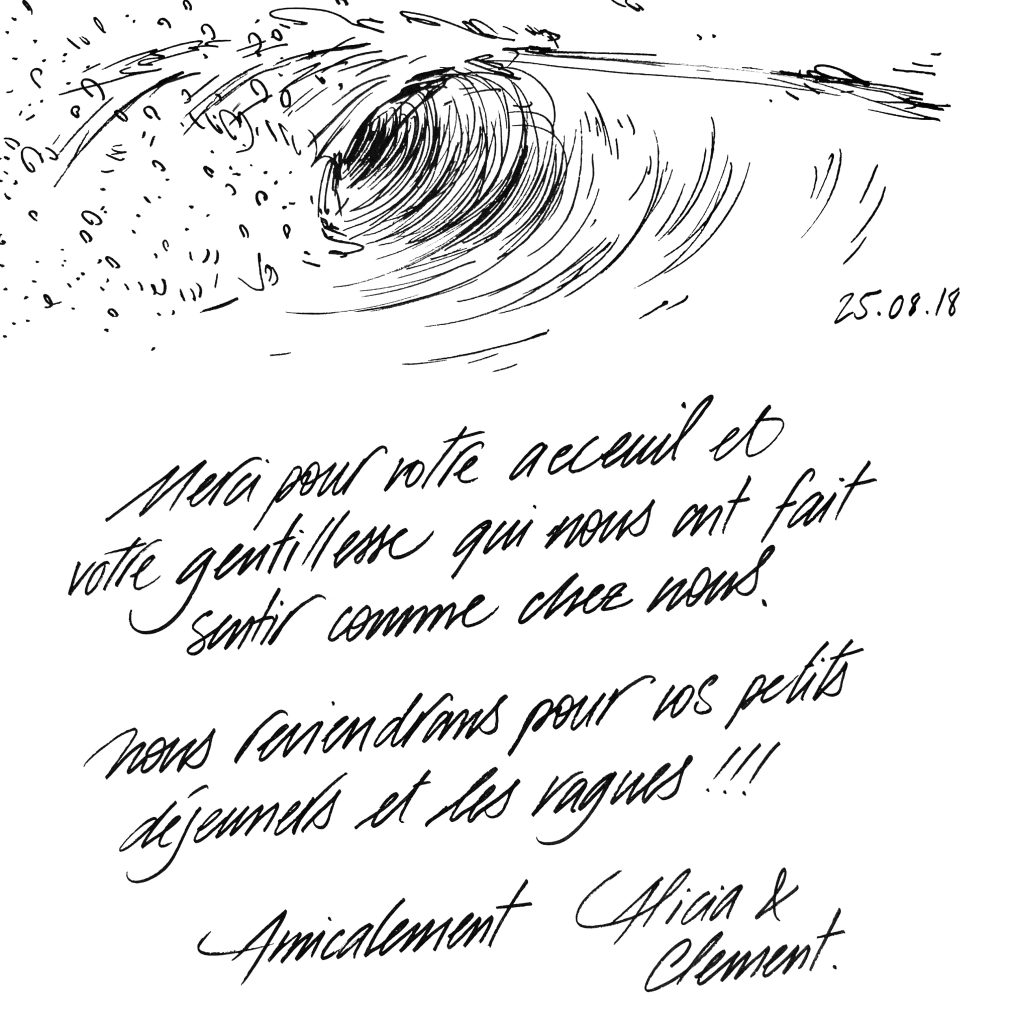 25.08.18
Merci pour votre acceuil et
votre gentillesse qui nous ont fait
sentir comme chez nous.
nous reviendrons pour vos petits
déjeuners et les vagues !!!
Amicalement Alicia &
Clement.